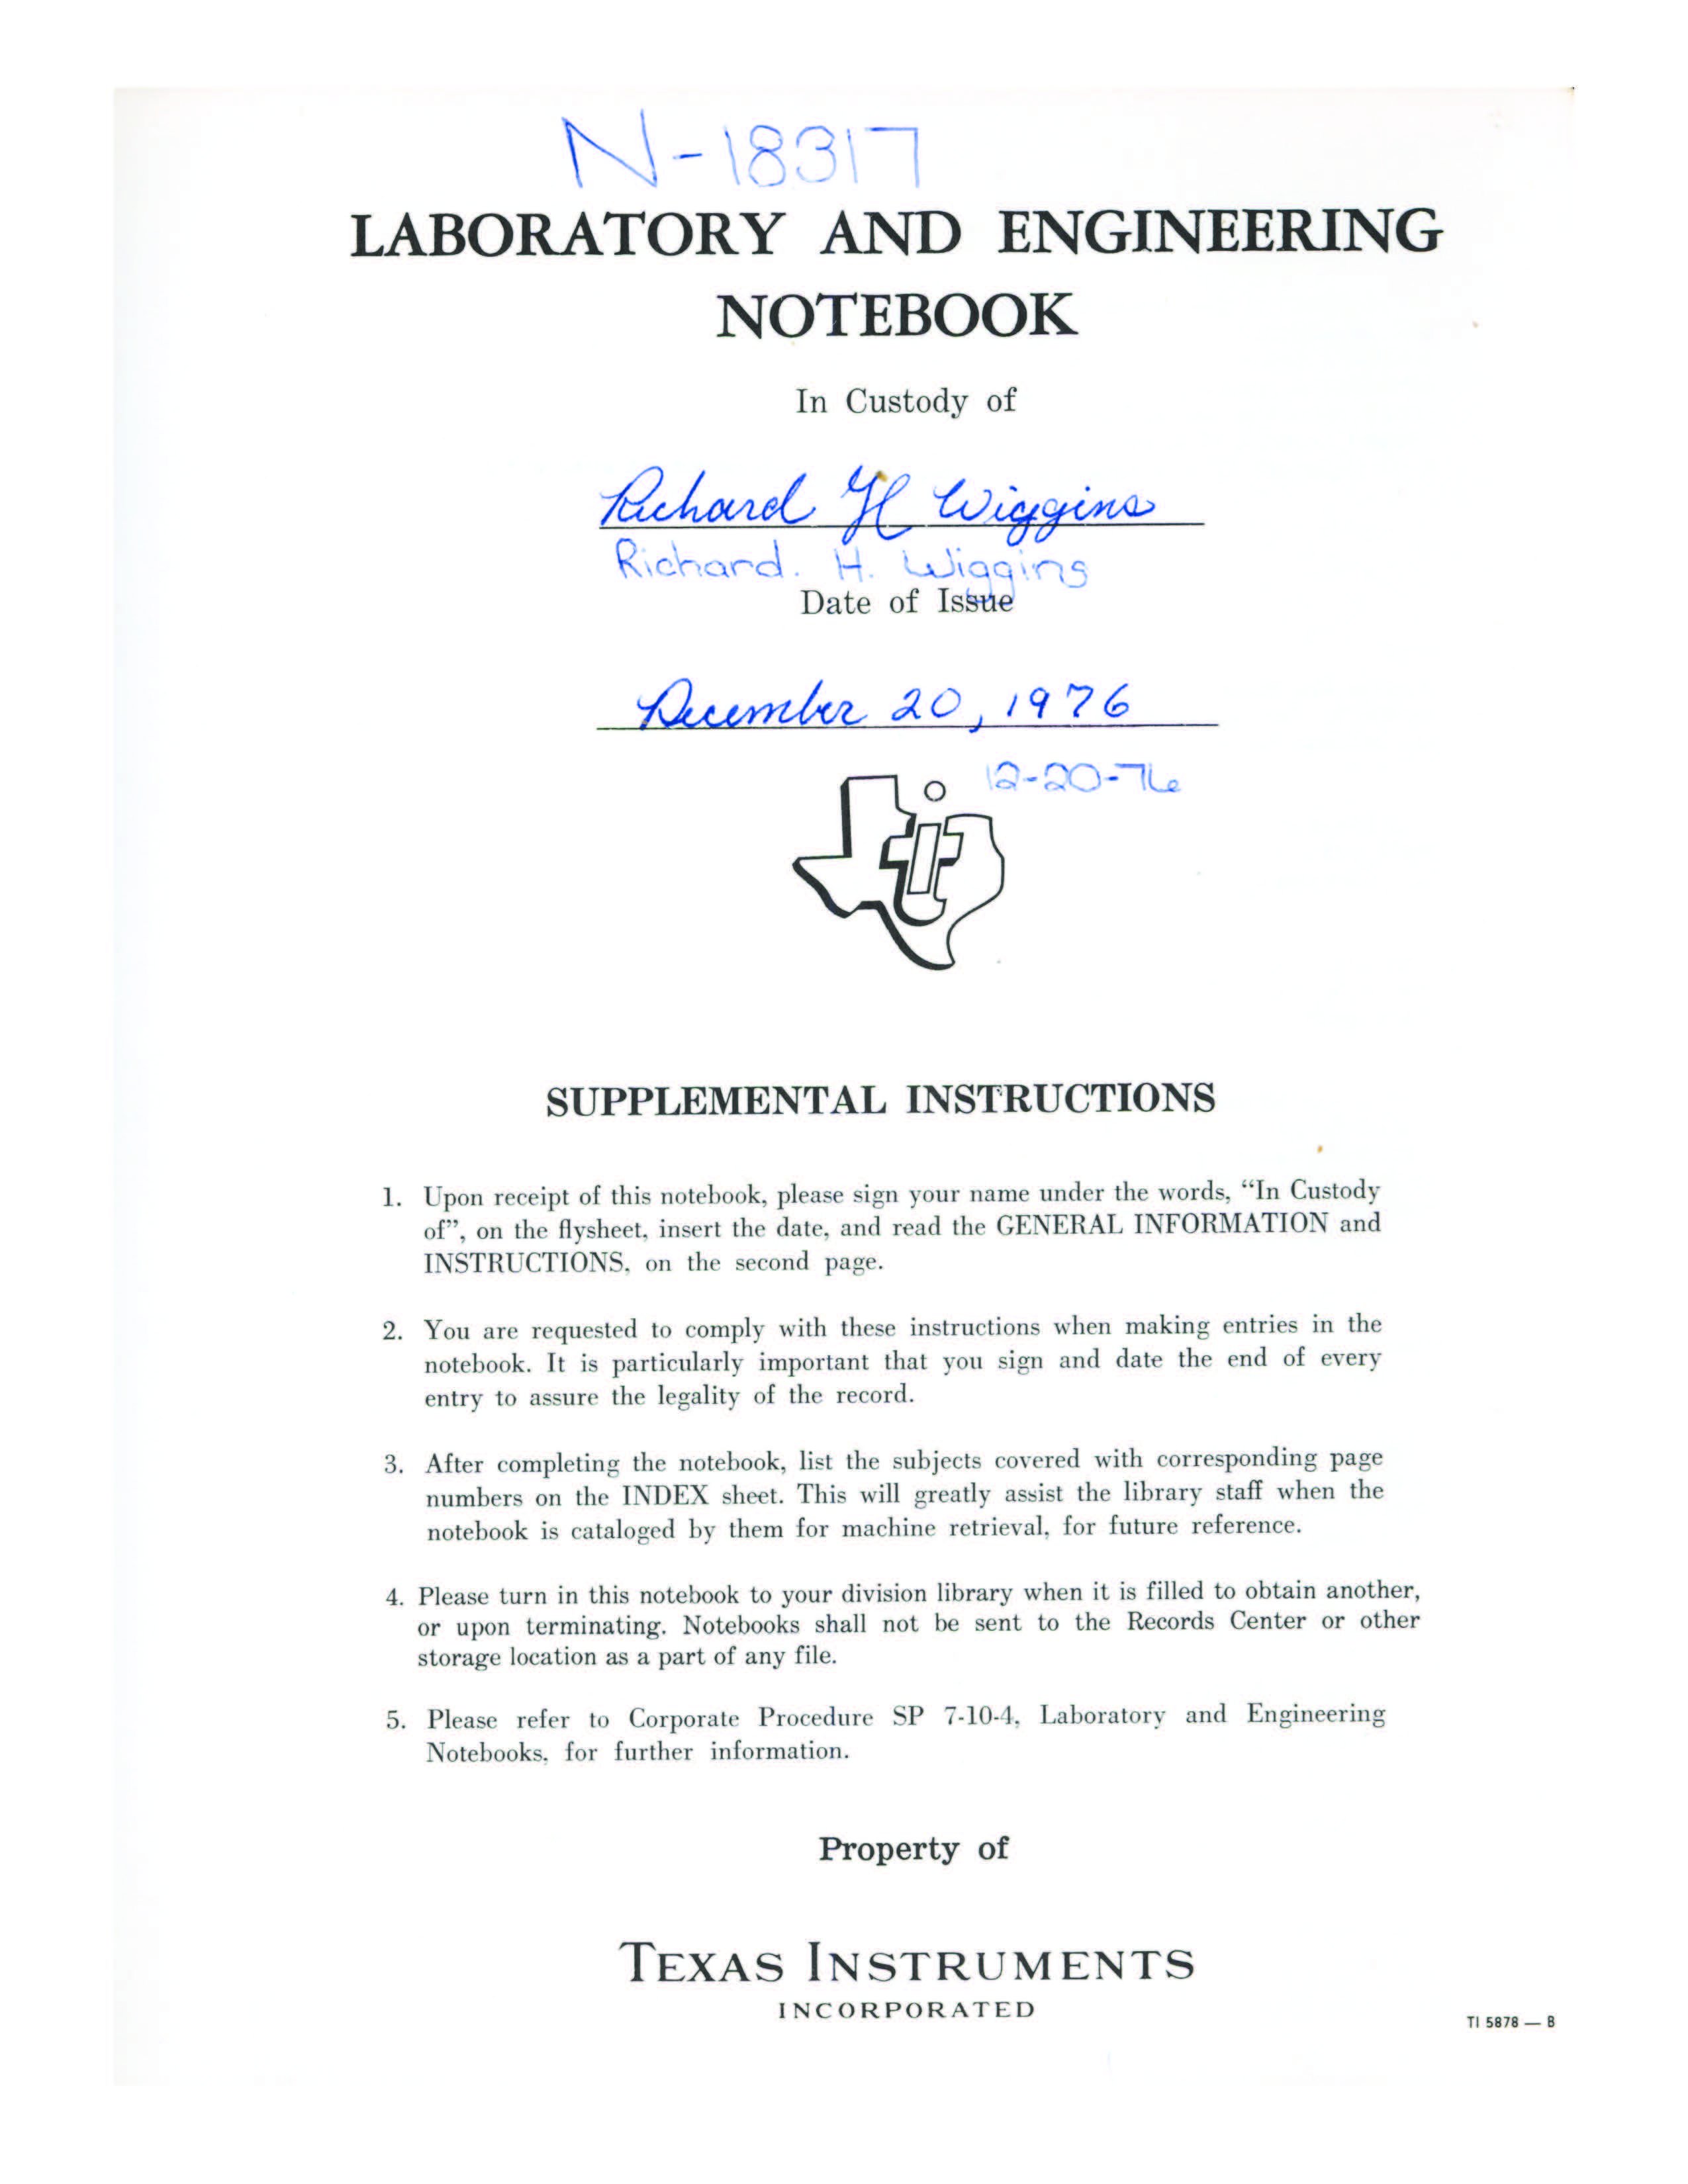 N-18317
LABORATORY AND ENGINEERING
NOTEBOOK
In Custody of
Richard H Wiggins
Richard. H. Wiggins
Date of Issue
December 20, 1976
12-20-76
SUPPLEMENTAL INSTRUCTIONS
1. Upon receipt of this notebook, please sign your name under the words, “In Custody
of”, on the flysheet, insert the date, and read the GENERAL INFORMATION and
INSTRUCTIONS, on the second page.
2. You are requested to comply with these instructions when making entries in the
notebook. It is particularly important that you sign and date the end of every
entry to assure the legality of the record.
3. After completing the notebook, list the subjects covered with corresponding page
numbers on the INDEX sheet. This will greatly assist the library staff when the
notebook is cataloged by them for machine retrieval, for future reference.
4. Please turn in this notebook to your division library when it is filled to obtain another,
or upon terminating. Notebooks shall not be sent to the Records Center or other
storage location as a part of any file.
5. Please refer to Corporate Procedure SP 7-10-4, Laboratory and Engineering
Notebooks, for further information.
Property of
TEXAS INSTRUMENTS
INCORPORATED
TI 5878 — B